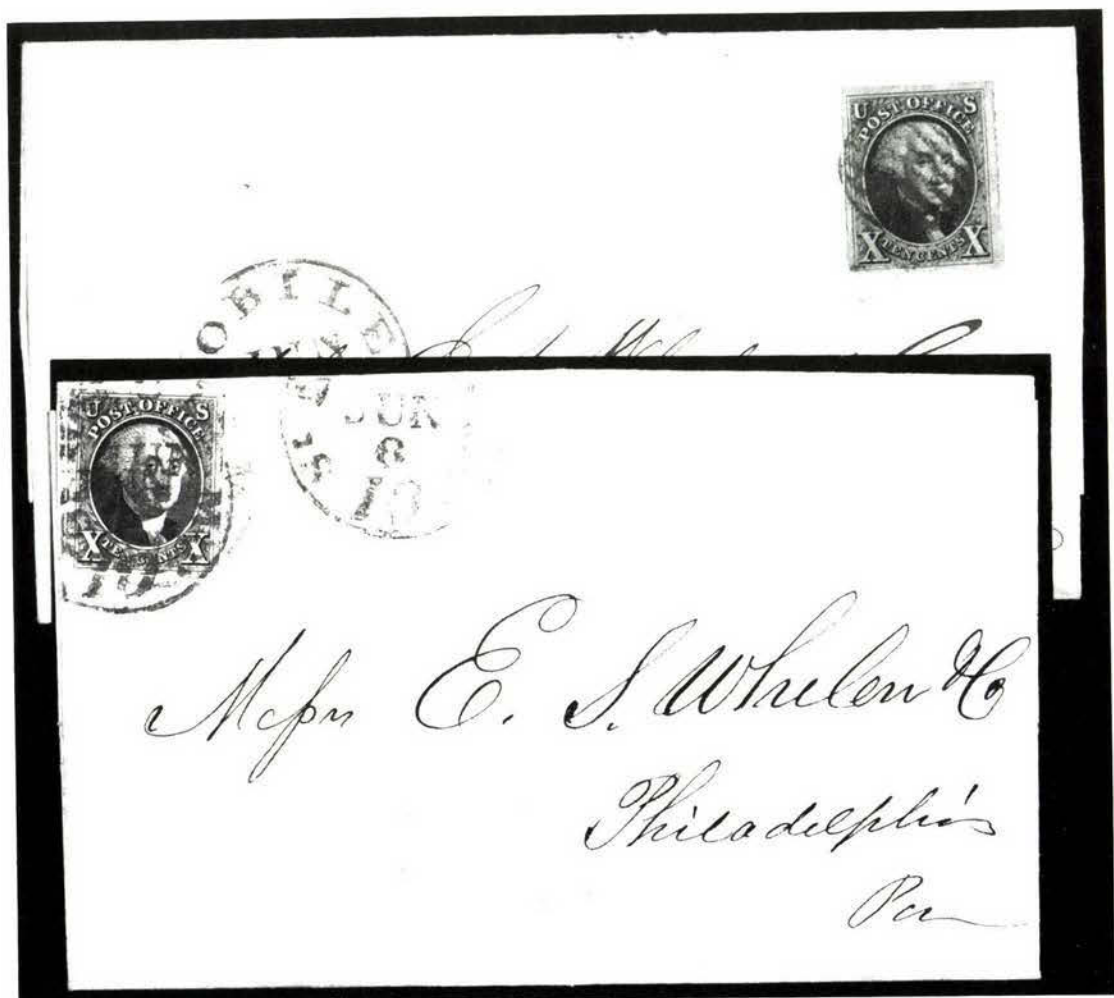 U S
POST OFFICE
X TEN CENTS X
OBILE
U S
POST OFFICE
X TEN CENTS X
JUN
8
10
Messrs E. S. Whelen & Co
Philadelphia
Pa